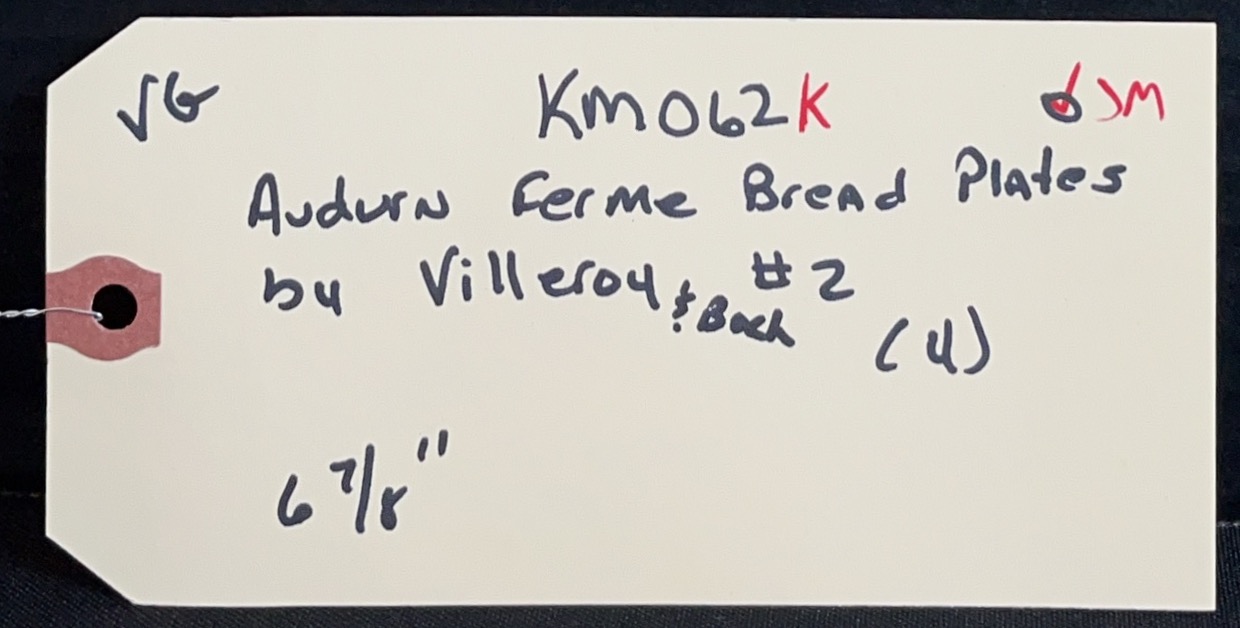 VG KM062K JM
Audurn Ferme Bread Plates
by Villeroy & Boch #2
(4)
6 7/8"